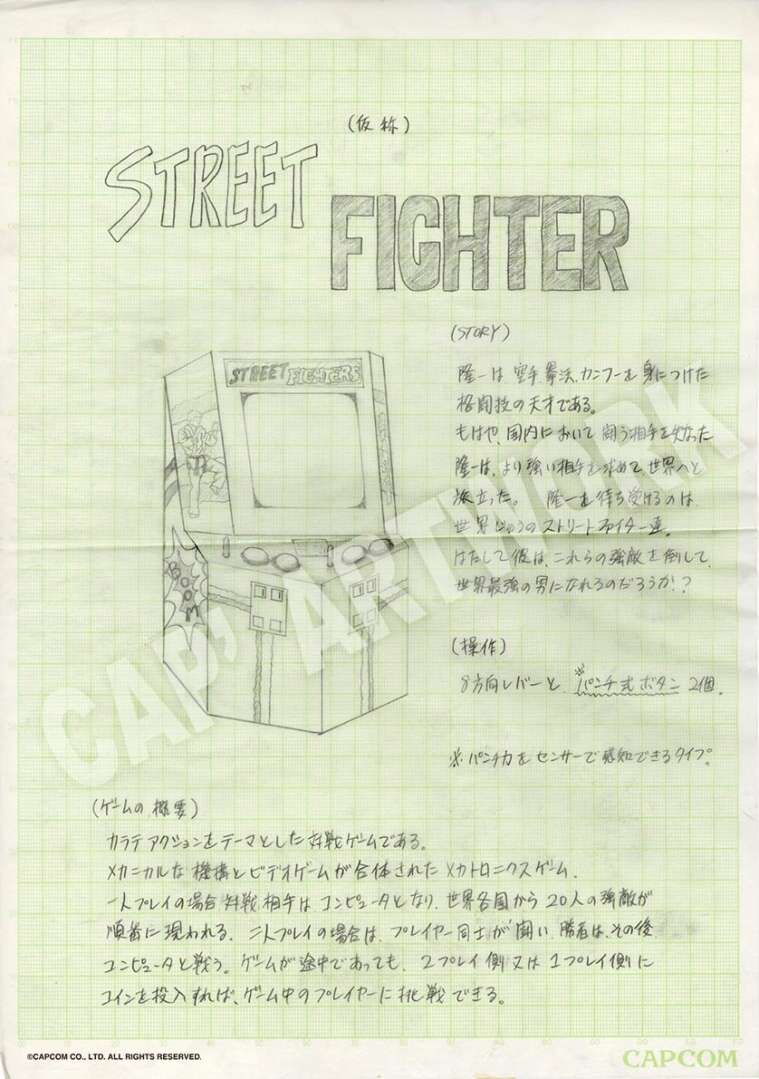 (仮称)
STREET
FIGHTER
(STORY)
隆一は空手、拳法、カンフーを身につけた
格闘技の天才である。
もはや、国内において闘う相手を失なった
隆一は、より強い相手を求めて、世界へと
旅立った。 隆一を待ち受けるのは、
世界じゅうのストリートファイター達。
はたして彼は、これらの強敵を倒して、
世界最強の男になれるのだろうか!?
STREET FIGHTERS
BOOM
(操作)
8方向レバーと、※パンチ式ボタン 2個。
※パンチ力をセンサーで感知できるタイプ。
(ゲームの概要)
カラテアクションをテーマとした対戦ゲームである。
メカニカルな機構とビデオゲームが合体されたメカトロニクスゲーム。
一人プレイの場合、対戦相手は、コンピュータとなり、世界各国から20人の強敵が
順番に現われる。二人プレイの場合は、プレイヤー同士が闘い、勝者は、その後
コンピュータと戦う。ゲームが途中であっても、2プレイ側又は1プレイ側に
コインを投入すれば、ゲーム中のプレイヤーに挑戦できる。
CAP' ARTWORK
©CAPCOM CO., LTD. ALL RIGHTS RESERVED.
CAPCOM